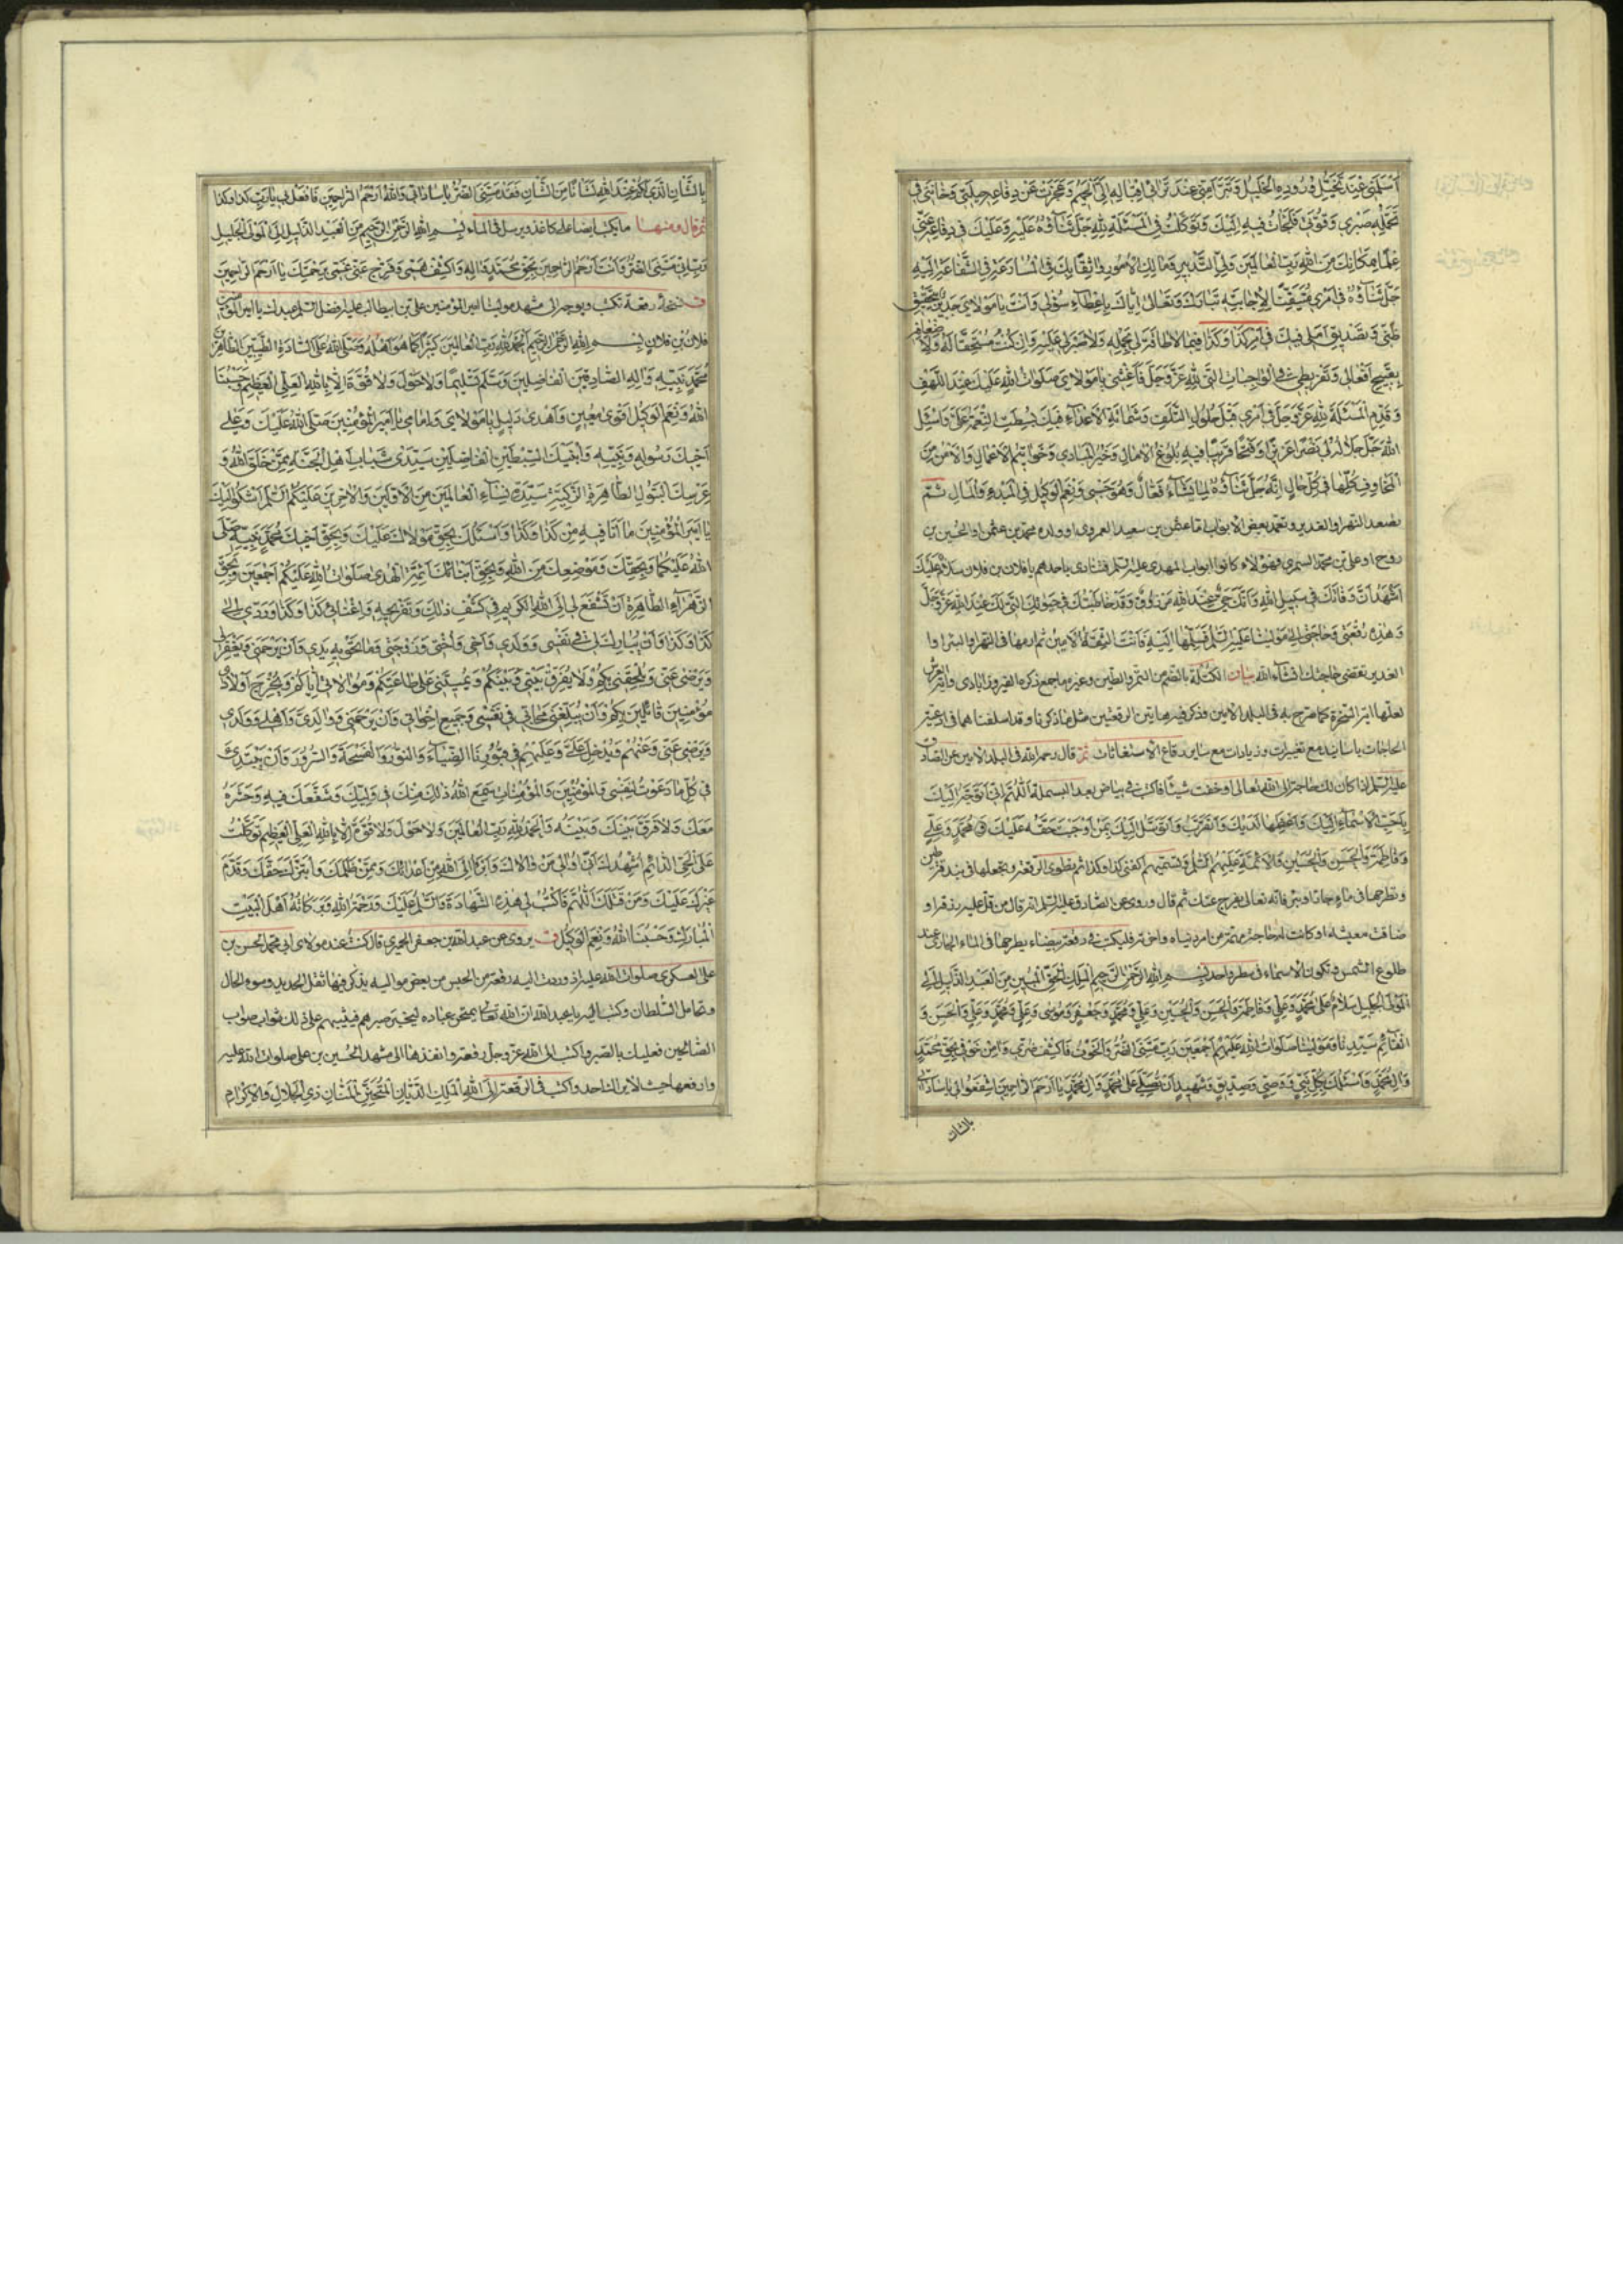 أَسْلَمَنِي عِنْدَ تَخَيُّلِ وُرُودِهِ الْخَلِيلُ وَتَبَرَّأَ مِنِّي عِنْدَ تَرَائِي إِقْبَالِهِ إِلَيَّ الْحَمِيمُ وَعَجَزَتْ عَنْ دِفَاعِهِ حِيلَتِي وَخَانَنِي فِي
تَحَمُّلِهِ صَبْرِي وَقُوَّتِي فَلَجَأْتُ فِيهِ إِلَيْكَ وَتَوَكَّلْتُ فِي الْمَسْئَلَةِ لِلَّهِ جَلَّ ثَنَاؤُهُ عَلَيْهِ وَعَلَيْكَ فِي دِفَاعِهِ عَنِّي
عِلْمًا بِمَكَانِكَ مِنَ اللَّهِ رَبِّ الْعَالَمِينَ وَلِيِّ التَّدْبِيرِ وَمَالِكِ الْأُمُورِ وَاثِقًا بِكَ فِي الْمُسَارَعَةِ فِي الشَّفَاعَةِ إِلَيْهِ
جَلَّ ثَنَاؤُهُ فِي أَمْرِي مُتَيَقِّنًا لِإِجَابَتِهِ تَبَارَكَ وَتَعَالَى إِيَّاكَ بِإِعْطَاءِ سُؤْلِي وَأَنْتَ يَا مَوْلَايَ جَدِيرٌ بِتَحْقِيقِ
ظَنِّي وَتَصْدِيقِ أَمَلِي فِيكَ فِي أَمْرِ كَذَا وَكَذَا فِيمَا لَا طَاقَةَ لِي بِحَمْلِهِ وَلَا صَبْرَ لِي عَلَيْهِ وَإِنْ كُنْتُ مُسْتَحِقًّا لَهُ وَلِأَضْعَافِهِ
بِقَبِيحِ أَفْعَالِي وَتَفْرِيطِي فِي الْوَاجِبَاتِ الَّتِي لِلَّهِ عَزَّ وَجَلَّ فَأَغِثْنِي يَا مَوْلَايَ صَلَوَاتُ اللَّهِ عَلَيْكَ عِنْدَ اللَّهَفِ
وَقَدِّمِ الْمَسْئَلَةَ لِلَّهِ عَزَّ وَجَلَّ فِي أَمْرِي قَبْلَ حُلُولِ التَّلَفِ وَشَمَاتَةِ الْأَعْدَاءِ فَبِكَ بُسِطَتِ النِّعْمَةُ عَلَيَّ وَاسْئَلِ
اللَّهَ جَلَّ جَلَالُهُ لِي نَصْرًا عَزِيزًا وَفَتْحًا قَرِيبًا فِيهِ بُلُوغُ الْآمَالِ وَخَيْرُ الْمَبَادِي وَخَوَاتِيمُ الْأَعْمَالِ وَالْأَمْنُ مِنَ
الْمَخَاوِفِ كُلِّهَا فِي كُلِّ حَالٍ إِنَّهُ جَلَّ ثَنَاؤُهُ لِمَا يَشَاءُ فَعَّالٌ وَهُوَ حَسْبِي وَنِعْمَ الْوَكِيلُ فِي الْمَبْدَءِ وَالْمَآلِ ثُمَّ
تصعد النهر او الغدير وتعمد بعض الابواب اما عثمن بن سعيد العمروي او ولده محمد بن عثمن او الحسين بن
روح او علي بن محمد السمري فهؤلاء كانوا ابواب المهدي عليه السلم فتنادي باحدهم يا فلان بن فلان سلام عليك
أَشْهَدُ أَنَّ وَفَاتَكَ فِي سَبِيلِ اللَّهِ وَأَنَّكَ حَيٌّ عِنْدَ اللَّهِ مَرْزُوقٌ وَقَدْ خَاطَبْتُكَ فِي حَيَوتِكَ الَّتِي لَكَ عِنْدَ اللَّهِ عَزَّ وَجَلَّ
وَهَذِهِ رُقْعَتِي وَحَاجَتِي إِلَى مَوْلَانَا عَلَيْهِ السَّلَمُ فَسَلِّمْهَا إِلَيْهِ فَأَنْتَ الثِّقَةُ الْأَمِينُ ثم ارمها في النهر او البئر او
الغدير تقضى حاجتك انشاء الله بيان الكتلة بالضم من التمر والطين وغيره ما جمع ذكره الفيروزابادي والبئر
لعلها البئر كما صرح به في البلد الامين فذكر فيه هاتين الرقعتين مثل ما ذكرنا وقد اسلفنا هما في ادعية
الحاجات باسانيد مع تغييرات وزيادات مع ساير رقاع الاستغاثات ثم قال رحمه الله في البلد الامين عن الصادق
عليه السلم اذا كان لك حاجة الى الله تعالى او خفت شيئا فاكتب في بياض بعد البسملة اللَّهُمَّ إِنِّي أَتَوَجَّهُ إِلَيْكَ
بِأَحَبِّ الْأَسْمَاءِ إِلَيْكَ وَأَعْظَمِهَا لَدَيْكَ وَأَتَقَرَّبُ وَأَتَوَسَّلُ إِلَيْكَ بِمَنْ أَوْجَبْتَ حَقَّهُ عَلَيْكَ بِمُحَمَّدٍ وَعَلِيٍّ
وَفَاطِمَةَ وَالْحَسَنِ وَالْحُسَيْنِ وَالْأَئِمَّةِ عَلَيْهِمُ السَّلَمُ وتسميهم اكفني كذا وكذا ثم تطوي الرقعة وتجعلها في بندقة طين
وتطرحها في ماء جار او بئر فانه تعالى يفرج عنك ثم قال وروي عن الصادق عليه السلم انه قال من قل عليه رزقه او
ضاقت معيشته او كانت له حاجة مهمة من امر دنياه واخرته فليكتب في رقعة بيضاء يطرحها في الماء الجاري عند
طلوع الشمس وتكون الاسماء في سطر واحد بِسْمِ اللَّهِ الرَّحْمَنِ الرَّحِيمِ الْمَلِكِ الْحَقِّ الْمُبِينِ مِنَ الْعَبْدِ الذَّلِيلِ إِلَى
الْمَوْلَى الْجَلِيلِ سَلَامٌ عَلَى مُحَمَّدٍ وَعَلِيٍّ وَفَاطِمَةَ وَالْحَسَنِ وَالْحُسَيْنِ وَعَلِيٍّ وَمُحَمَّدٍ وَجَعْفَرٍ وَمُوسَى وَعَلِيٍّ وَمُحَمَّدٍ وَعَلِيٍّ وَالْحَسَنِ وَ
الْقَائِمِ سَيِّدِنَا وَمَوْلَانَا صَلَوَاتُ اللَّهِ عَلَيْهِمْ أَجْمَعِينَ رَبِّ مَسَّنِيَ الضُّرُّ وَالْخَوْفُ فَاكْشِفْ ضُرِّي وَآمِنْ خَوْفِي بِحَقِّ مُحَمَّدٍ
وَآلِ مُحَمَّدٍ وَأَسْئَلُكَ بِكُلِّ نَبِيٍّ وَوَصِيٍّ وَصِدِّيقٍ وَشَهِيدٍ أَنْ تُصَلِّيَ عَلَى مُحَمَّدٍ وَآلِ مُحَمَّدٍ يَا أَرْحَمَ الرَّاحِمِينَ اشْفَعُوا لِي يَا سَادَاتِي
بالشان
بِالشَّأْنِ الَّذِي لَكُمْ عِنْدَ اللَّهِ فَإِنَّ لَكُمْ عِنْدَ اللَّهِ لَشَأْنًا مِنَ الشَّأْنِ فَقَدْ مَسَّنِيَ الضُّرُّ يَا سَادَاتِي وَاللَّهُ أَرْحَمُ الرَّاحِمِينَ فَافْعَلْ بِي يَا رَبِّ كَذَا وَكَذَا
ثم قال ومنها ما يكتب ايضا على كاغذ ويرسل في الماء بِسْمِ اللَّهِ الرَّحْمَنِ الرَّحِيمِ مِنَ الْعَبْدِ الذَّلِيلِ إِلَى الْمَوْلَى الْجَلِيلِ
رَبِّ إِنِّي مَسَّنِيَ الضُّرُّ وَأَنْتَ أَرْحَمُ الرَّاحِمِينَ بِحَقِّ مُحَمَّدٍ وَآلِهِ وَاكْشِفْ هَمِّي وَفَرِّجْ عَنِّي غَمِّي بِرَحْمَتِكَ يَا أَرْحَمَ الرَّاحِمِينَ
ق نسخة رقعة تكتب وتوجه الى مشهد مولانا امير المؤمنين علي بن ابيطالب عليه افضل السلم عبدك يا امير المؤمنين
فلان بن فلان بِسْمِ اللَّهِ الرَّحْمَنِ الرَّحِيمِ الْحَمْدُ لِلَّهِ رَبِّ الْعَالَمِينَ كَثِيرًا كَمَا هُوَ أَهْلُهُ وَصَلَّى اللَّهُ عَلَى السَّادَةِ الطَّيِّبِينَ الطَّاهِرِينَ
مُحَمَّدٍ نَبِيِّهِ وَآلِهِ الصَّادِقِينَ الْفَاضِلِينَ وَسَلَّمَ تَسْلِيمًا وَلَا حَوْلَ وَلَا قُوَّةَ إِلَّا بِاللَّهِ الْعَلِيِّ الْعَظِيمِ حَسْبُنَا
اللَّهُ وَنِعْمَ الْوَكِيلُ أَقْوَى مُعِينٍ وَأَهْدَى دَلِيلٍ يَا مَوْلَايَ وَإِمَامِي يَا أَمِيرَ الْمُؤْمِنِينَ صَلَّى اللَّهُ عَلَيْكَ وَعَلَى
أَخِيكَ رَسُولِهِ وَنَجِيِّهِ وَابْنَيْكَ السِّبْطَيْنِ الْفَاضِلَيْنِ سَيِّدَيْ شَبَابِ أَهْلِ الْجَنَّةِ مِمَّنْ خَلَقَ اللَّهُ وَ
عِرْسِكَ الْبَتُولِ الطَّاهِرَةِ الزَّكِيَّةِ سَيِّدَةِ نِسَاءِ الْعَالَمِينَ مِنَ الْأَوَّلِينَ وَالْآخِرِينَ عَلَيْكُمُ السَّلَمُ أَشْكُو إِلَيْكَ
يَا أَمِيرَ الْمُؤْمِنِينَ مَا أَنَا فِيهِ مِنْ كَذَا وَكَذَا وَأَسْئَلُكَ بِحَقِّ مَوْلَاكَ عَلَيْكَ وَبِحَقِّ أَخِيكَ مُحَمَّدٍ نَبِيِّهِ صَلَّى
اللَّهُ عَلَيْكُمَا وَبِحَقِّكَ وَمَوْضِعِكَ مِنَ اللَّهِ وَبِحَقِّ أَبْنَائِكَ أَئِمَّةِ الْهُدَى صَلَوَاتُ اللَّهِ عَلَيْكُمْ أَجْمَعِينَ وَبِحَقِّ
الزَّهْرَاءِ الطَّاهِرَةِ أَنْ تَشْفَعَ لِي إِلَى اللَّهِ الْكَرِيمِ فِي كَشْفِ ذَلِكَ وَتَفْرِيجِهِ وَإِغْنَائِي كَذَا وَكَذَا وَرَدِّي إِلَى
كَذَا وَكَذَا وَأَنْ يُبَارِكَ لِي فِي نَفْسِي وَوَلَدِي وَأَخِي وَأُخْتِي وَزَوْجَتِي وَمَا تَحْوِيهِ يَدِي وَأَنْ يَرْحَمَنِي وَيَغْفِرَ لِي
وَيَرْضَى عَنِّي وَيُلْحِقَنِي بِكُمْ وَلَا يُفَرِّقَ بَيْنِي وَبَيْنَكُمْ وَيُمِيتَنِي عَلَى طَاعَتِكُمْ وَمُوَالَاتِي إِيَّاكُمْ وَيُخْرِجَ أَوْلَادِي
مُؤْمِنِينَ قَائِلِينَ بِكُمْ وَأَنْ يُبَلِّغَنِي مَحَابِّي فِي نَفْسِي وَجَمِيعِ إِخْوَانِي وَأَنْ يَرْحَمَنِي وَوَالِدَيَّ وَأَهْلِي وَوَلَدِي
وَيَرْضَى عَنِّي وَعَنْهُمْ وَيُدْخِلَ عَلَيَّ وَعَلَيْهِمْ فِي قُبُورِنَا الضِّيَاءَ وَالنُّورَ وَالْفُسْحَةَ وَالسُّرُورَ وَأَنْ يَبْتَدِئَ
فِي كُلِّ مَا دَعَوْتُ لِنَفْسِي وَالْمُؤْمِنِينَ وَالْمُؤْمِنَاتِ سَمِعَ اللَّهُ ذَلِكَ مِنْكَ فِي وَلِيِّكَ وَشَفَّعَكَ فِيهِ وَحَشَرَهُ
مَعَكَ وَلَا فَرَّقَ بَيْنَكَ وَبَيْنَهُ وَالْحَمْدُ لِلَّهِ رَبِّ الْعَالَمِينَ وَلَا حَوْلَ وَلَا قُوَّةَ إِلَّا بِاللَّهِ الْعَلِيِّ الْعَظِيمِ تَوَكَّلْتُ
عَلَى الْحَيِّ الدَّائِمِ أُشْهِدُكَ أَنِّي أُوَالِي مَنْ وَالَاكَ وَأَبْرَأُ إِلَى اللَّهِ مِنْ أَعْدَائِكَ وَمِمَّنْ ظَلَمَكَ وَابْتَزَّكَ حَقَّكَ وَقَدَّمَ
غَيْرَكَ عَلَيْكَ وَمَنْ قَتَلَكَ اللَّهُمَّ فَاكْتُبْ لِي هَذِهِ الشَّهَادَةَ وَالسَّلَمُ عَلَيْكَ وَرَحْمَةُ اللَّهِ وَبَرَكَاتُهُ أَهْلَ الْبَيْتِ
الْمُبَارَكِ وَحَسْبُنَا اللَّهُ وَنِعْمَ الْوَكِيلُ ق يروى عن عبد الله بن جعفر الحميري قال كنت عند مولاي ابي محمد الحسن بن
علي العسكري صلوات الله عليه اذ وردت اليه رقعة من الحبس من بعض مواليه يذكر فيها ثقل الحديد وسوء الحال
وتحامل السلطان وكتب اليه يا عبد الله ان الله تعالى يمتحن عباده ليختبر صبرهم فيثيبهم على ذلك ثواب
الصالحين فعليك بالصبر واكتب الى الله عز وجل رقعة وانفذها الى مشهد الحسين بن علي صلوات الله عليه
وارفعها حيث لا يراك احد واكتب في الرقعة إِلَى اللَّهِ الْمَلِكِ الدَّيَّانِ الْمُتَحَنِّنِ الْمَنَّانِ ذِي الْجَلَالِ وَالْإِكْرَامِ